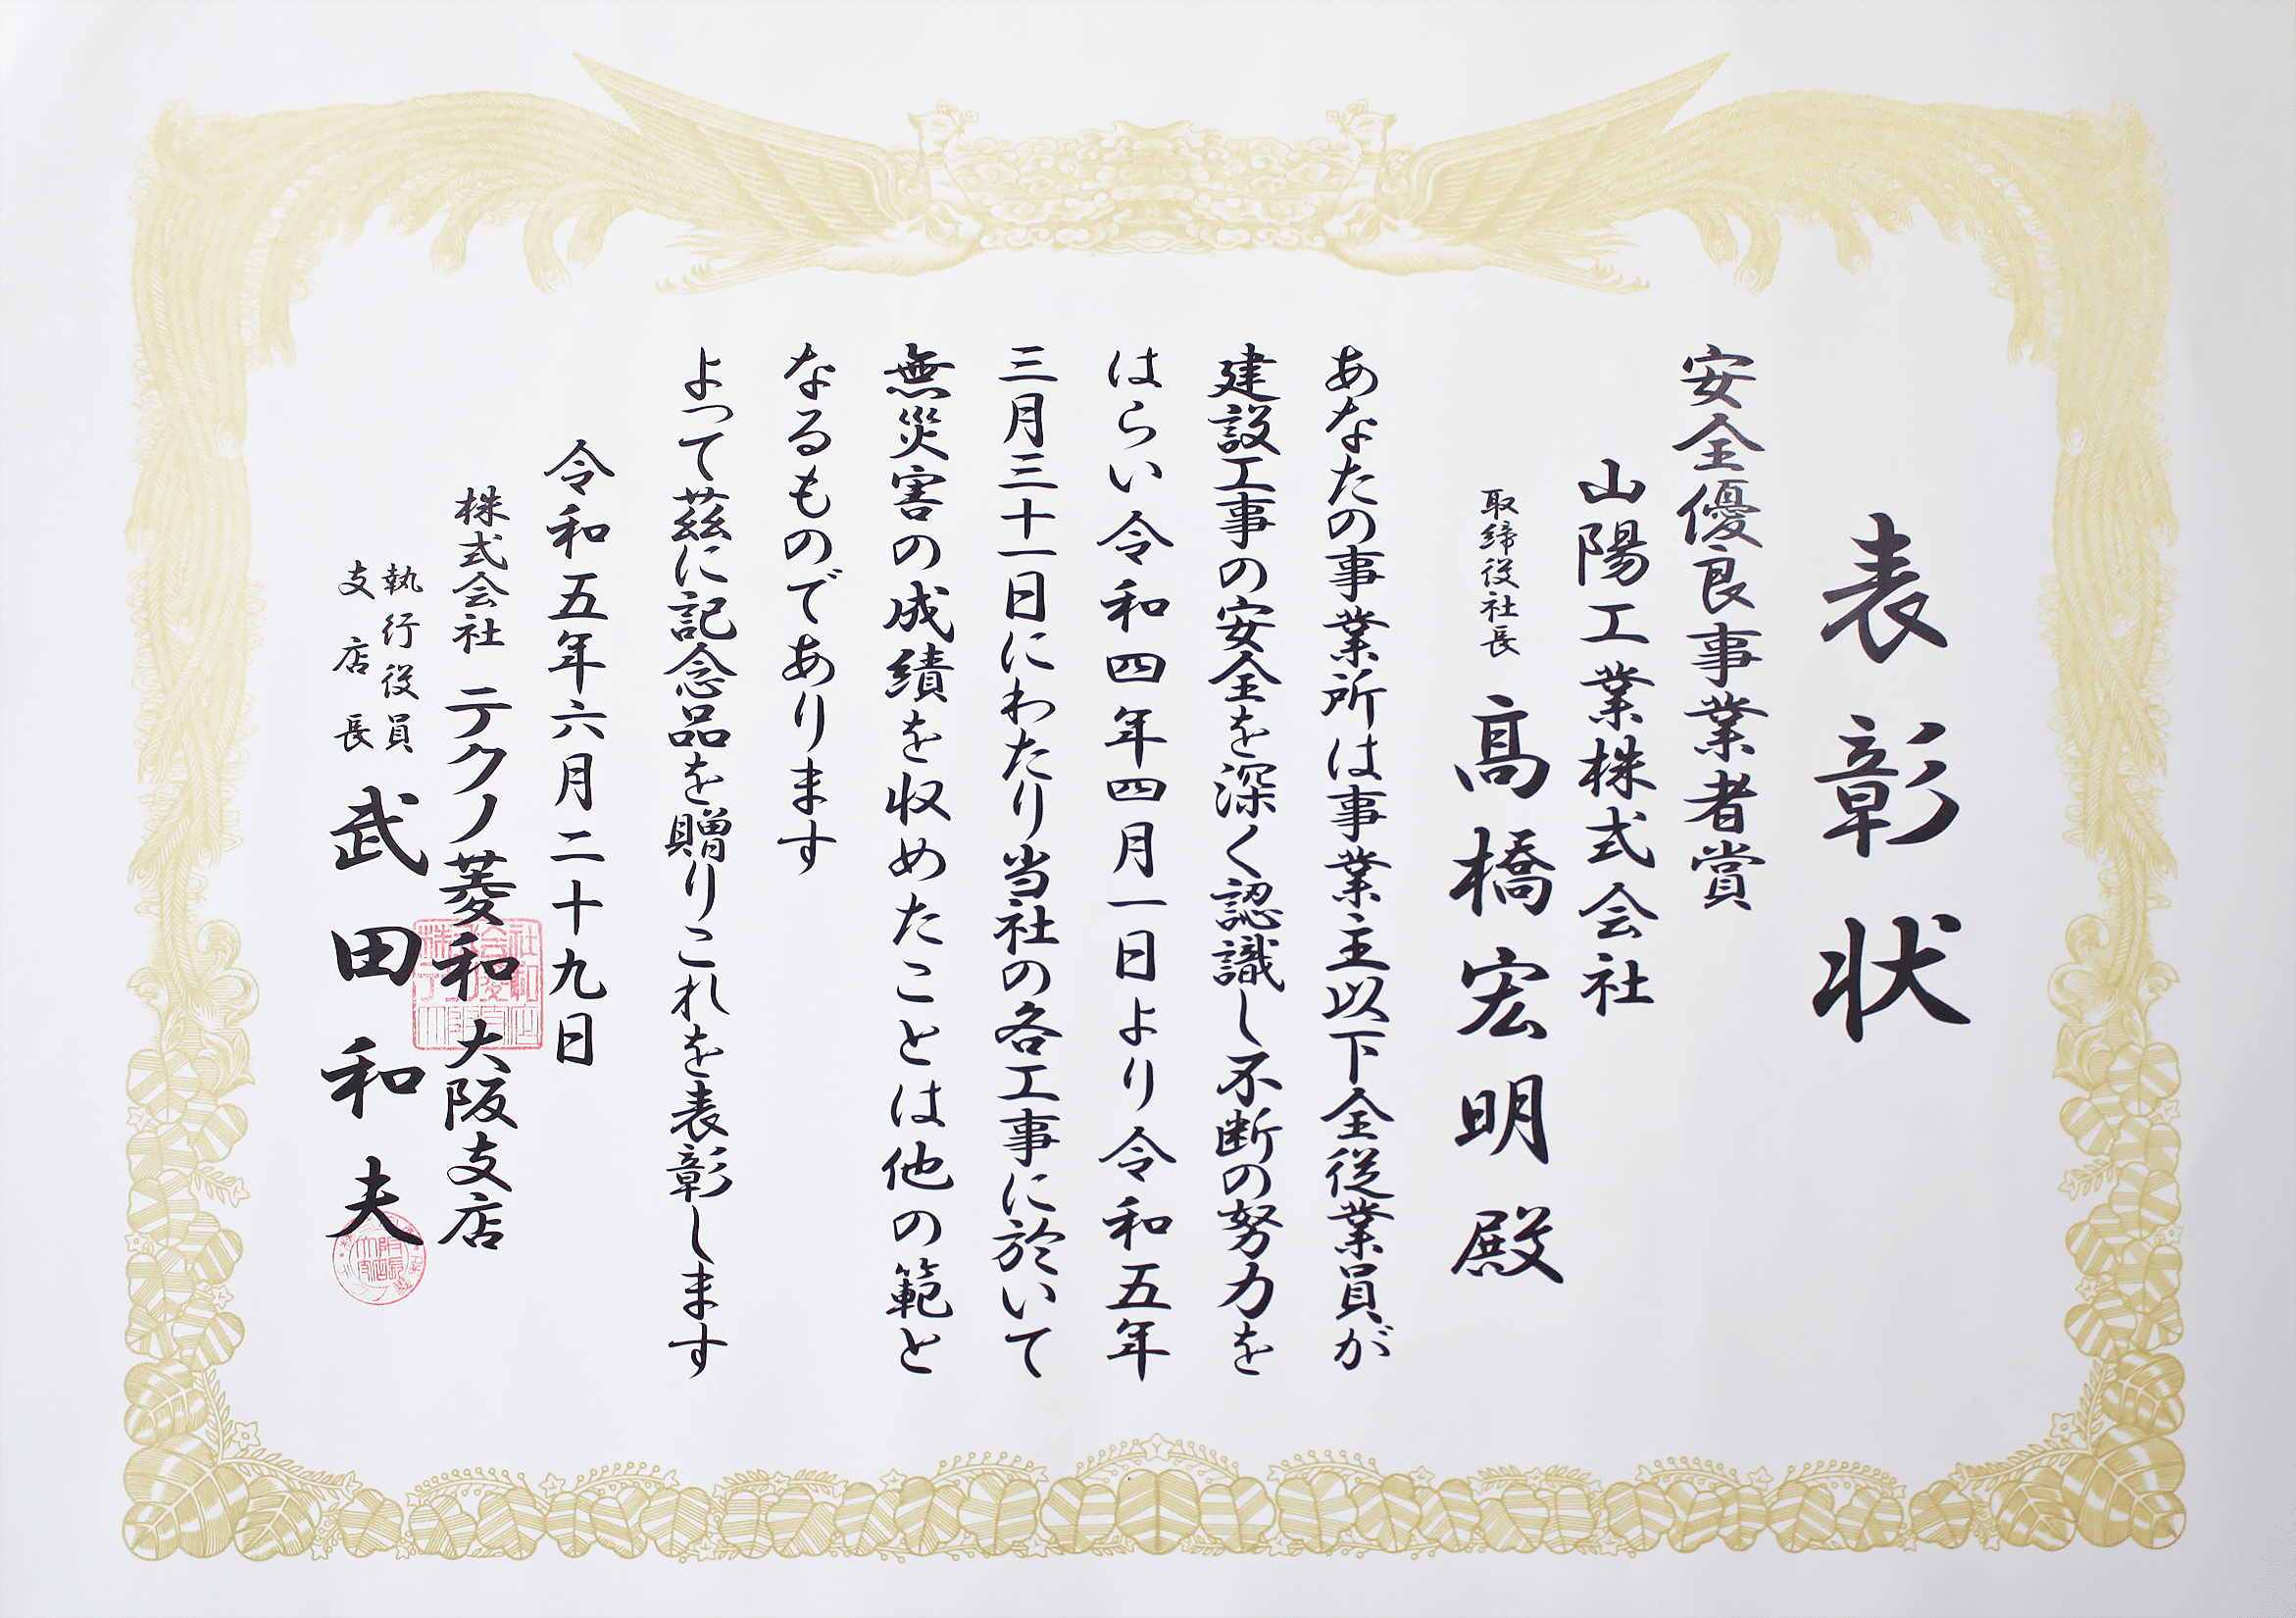 表彰状
安全優良事業者賞
山陽工業株式会社
取締役社長 髙橋宏明殿
あなたの事業所は事業主以下全従業員が
建設工事の安全を深く認識し不断の努力を
はらい令和四年四月一日より令和五年
三月三十一日にわたり当社の各工事に於いて
無災害の成績を収めたことは他の範と
なるものであります
よって茲に記念品を贈りこれを表彰します
令和五年六月二十九日
株式会社テクノ菱和大阪支店
執行役員
支店長 武田和夫